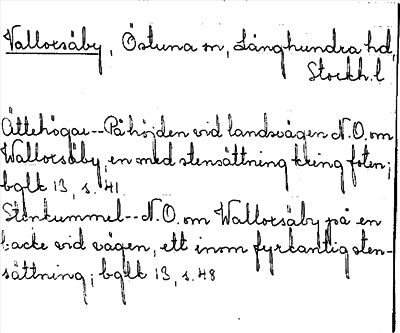 Vallorsäby, Östuna sn, Långhundra hd,
Stockh. l
Ättehögar--På höjden vid landsvägen N.O. om
Wallorsäby, en med stensättning kring foten;
bglk 13, s. 41.
Stenkummel--N.O. om Wallorsäby på en
backe vid vägen, ett inom fyrkantig sten-
sättning; bglk 13, s. 48